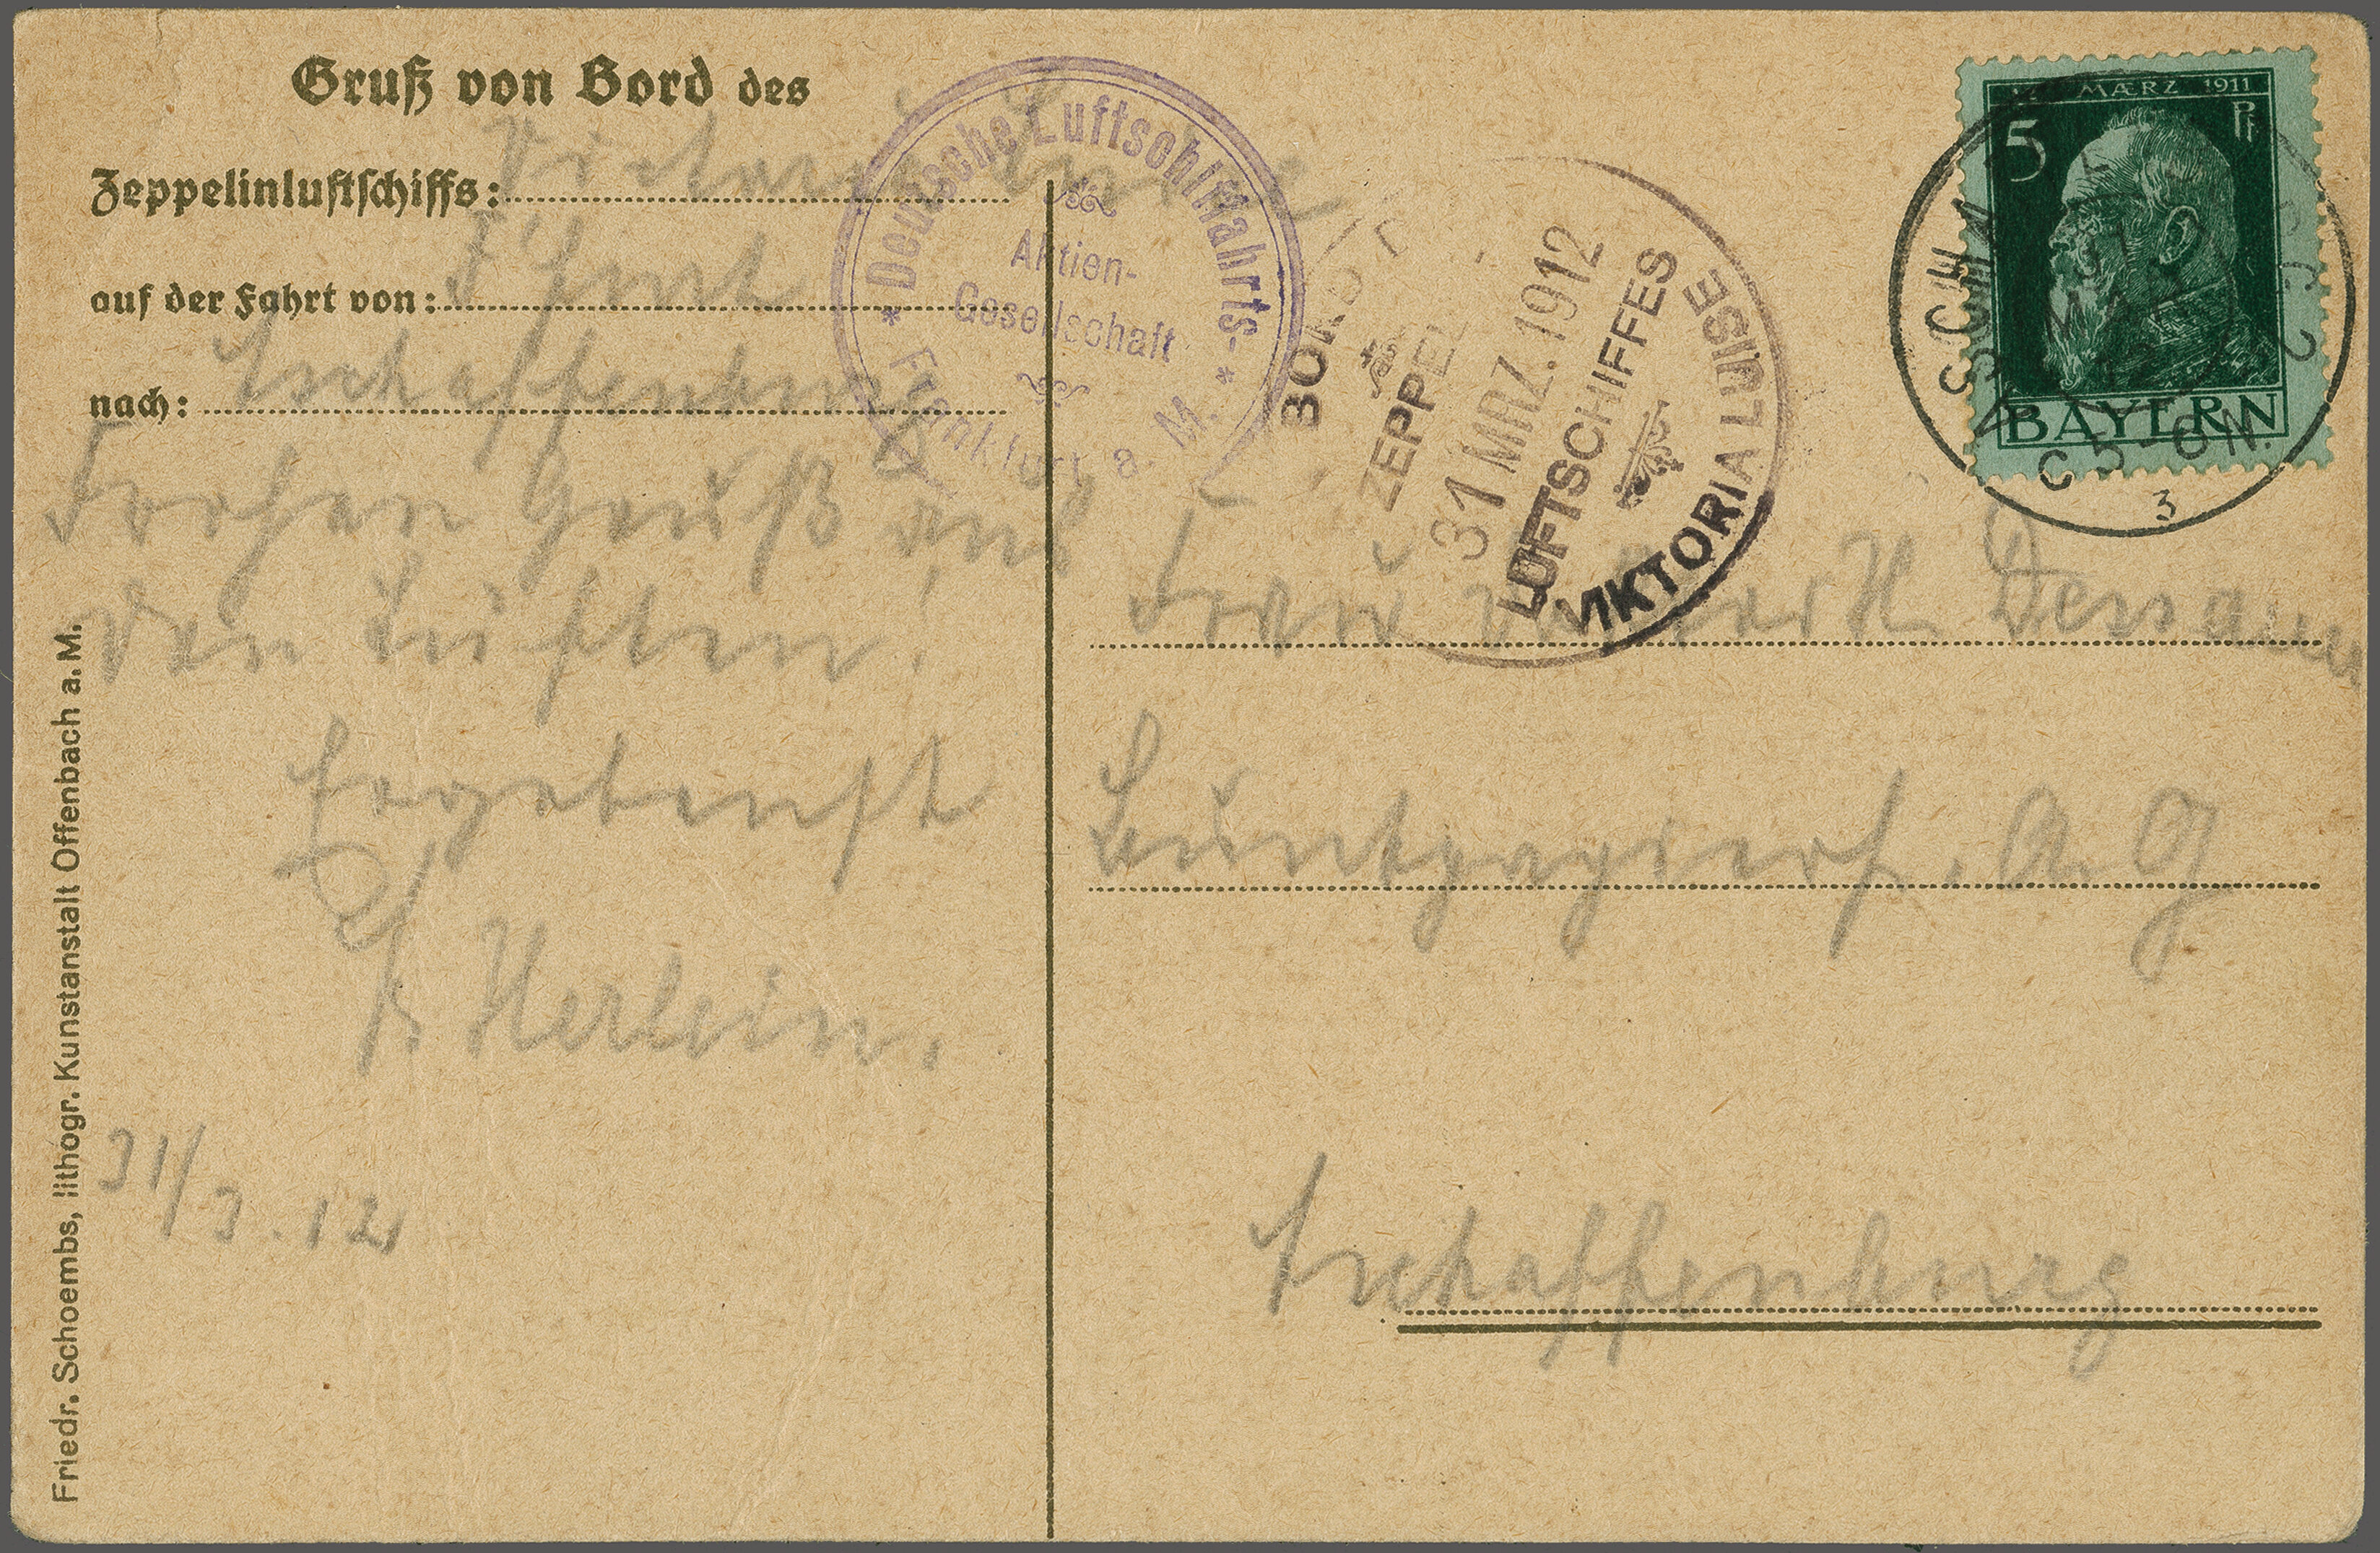 Gruß von Bord des
Zeppelinluftschiffs: Viktoria Luise
auf der Fahrt von:
nach: Aschaffenburg
Frohen Gruß aus
den Lüften!
Ergebenst
Herlein.
31/3.12
Friedr. Schoembs, lithogr. Kunstanstalt Offenbach a.M.
Deutsche Luftschiffahrts-
Aktien-
Gesellschaft
* Frankfurt a. M. *
BORD
ZEPPEL
31 MRZ. 1912
LUFTSCHIFFES
VIKTORIA LUISE
MÆRZ 1911
5 Pf
BAYERN
3
Frau
Buntpapierf. A.G.
Aschaffenburg